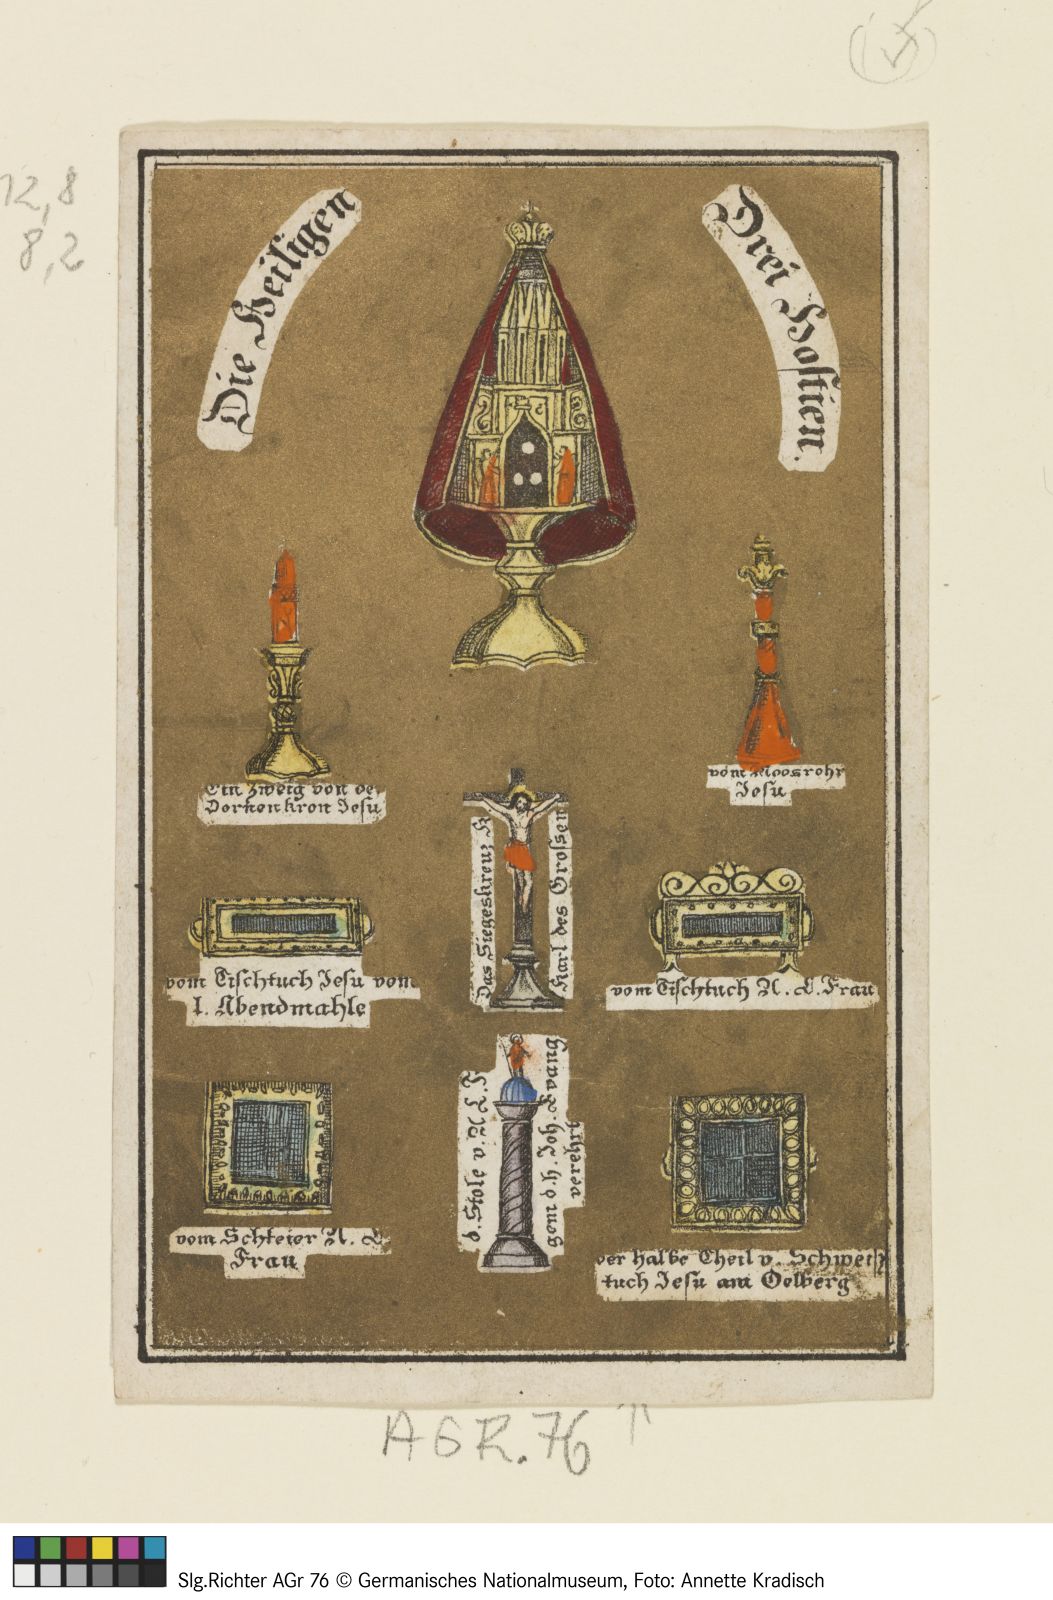 12,8
8,2
Die Heiligen
Drei Hostien.
Ein Zweig von de
Dornenkron Jesu
vom Moosrohr
Jesu
Das Siegeskreuz K
Karl des Grossen
vom Tischtuch Jesu vom
l. Abendmahle
vom Tischtuch U. L. Frau
d. Stole v.
Gom d. h. Joh. d.
verehrt
vom Schleier U. L.
Frau
der halbe Theil v. Schweiß
tuch Jesu am Oelberg
AGR. 76
Slg.Richter AGr 76 © Germanisches Nationalmuseum, Foto: Annette Kradisch